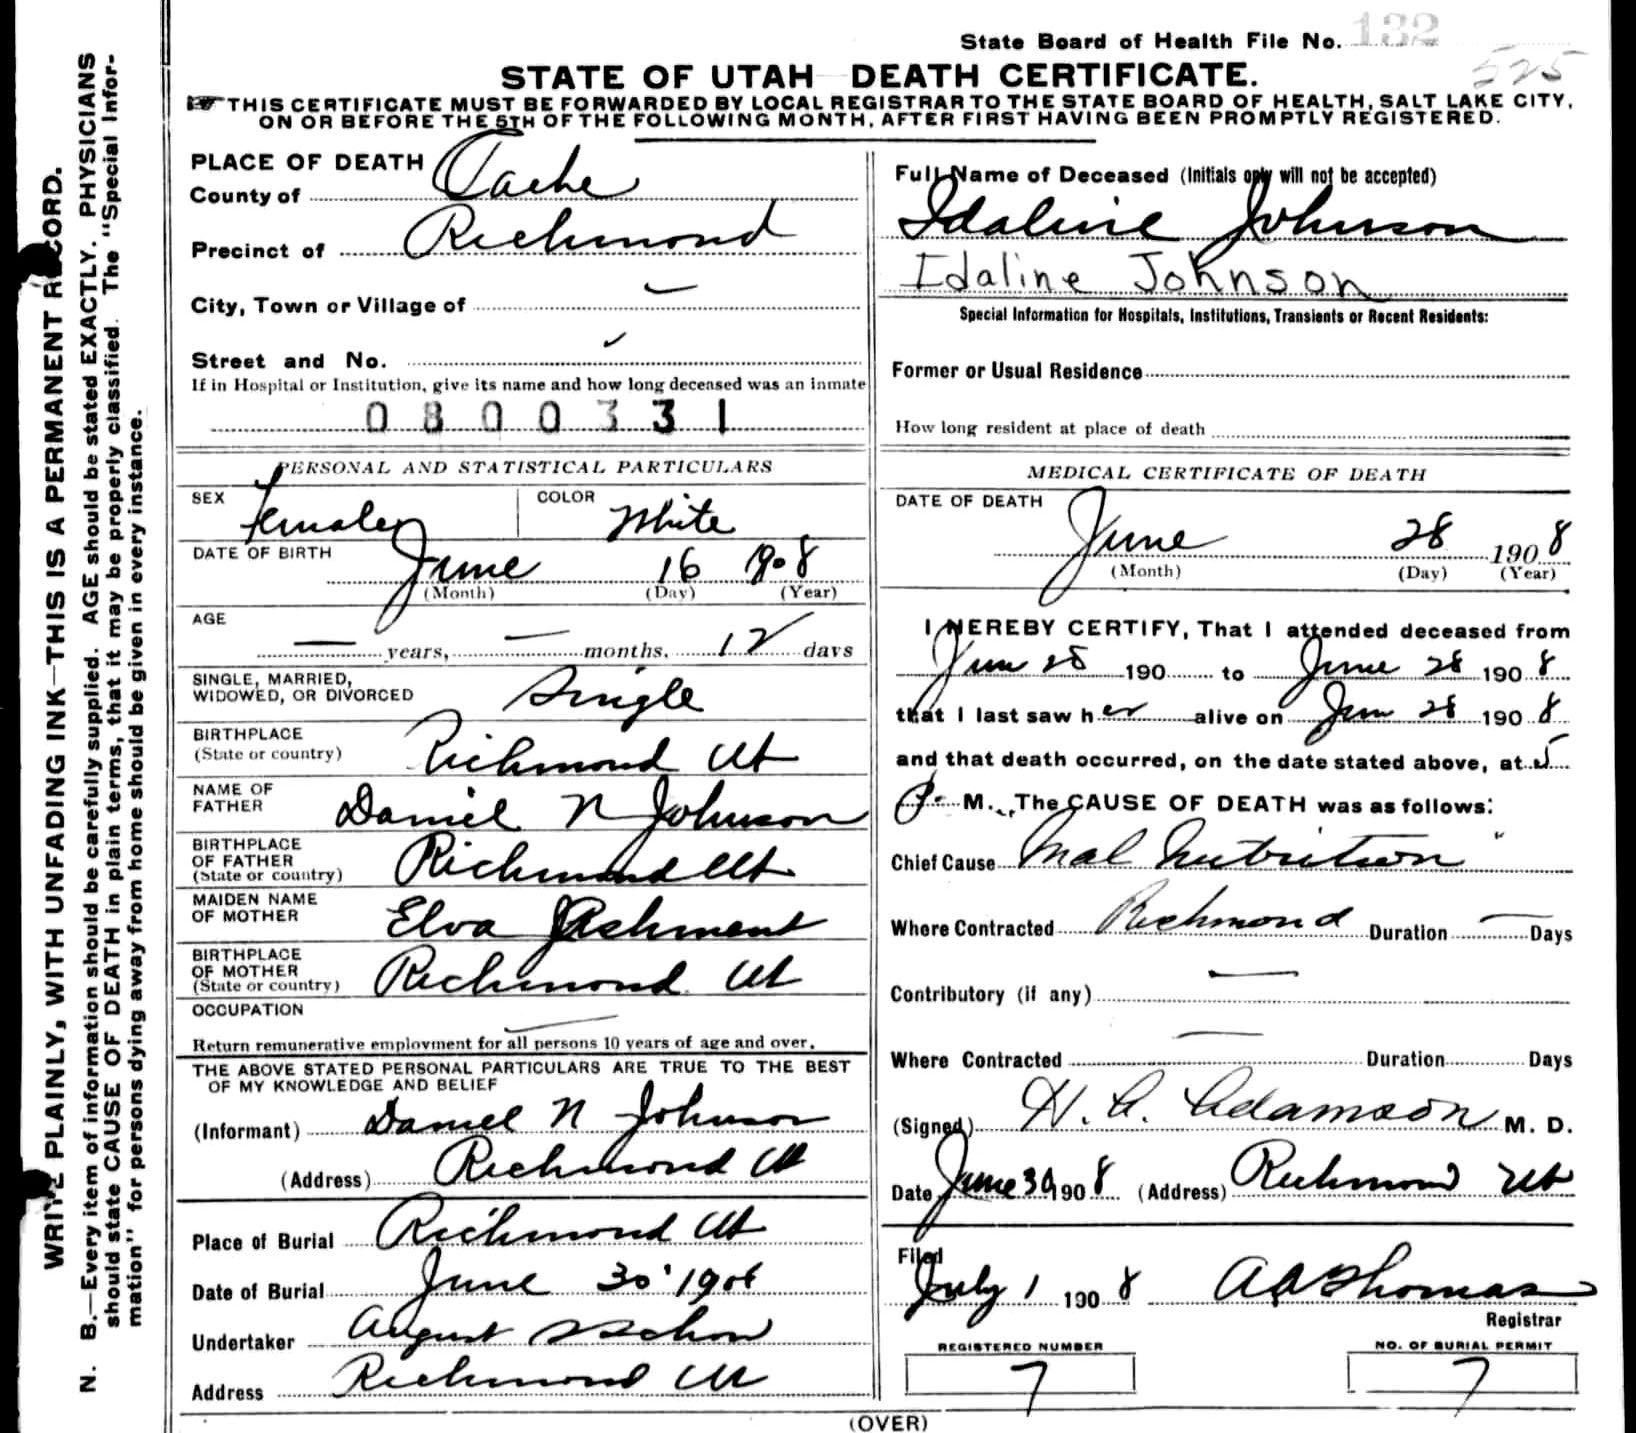 State Board of Health File No. 132
525
STATE OF UTAH DEATH CERTIFICATE.
THIS CERTIFICATE MUST BE FORWARDED BY LOCAL REGISTRAR TO THE STATE BOARD OF HEALTH, SALT LAKE CITY,
ON OR BEFORE THE 5TH OF THE FOLLOWING MONTH, AFTER FIRST HAVING BEEN PROMPTLY REGISTERED.
WRITE PLAINLY, WITH UNFADING INK—THIS IS A PERMANENT RECORD.
N. B.—Every item of information should be carefully supplied. AGE should be stated EXACTLY. PHYSICIANS
should state CAUSE OF DEATH in plain terms, that it may be properly classified. The "Special Infor-
mation" for persons dying away from home should be given in every instance.
PLACE OF DEATH
County of Cache
Precinct of Richmond
City, Town or Village of —
Street and No.
If in Hospital or Institution, give its name and how long deceased was an inmate
0800331
PERSONAL AND STATISTICAL PARTICULARS
SEX Female COLOR White
DATE OF BIRTH June 16 1908
(Month) (Day) (Year)
AGE
— years, — months, 12 days
SINGLE, MARRIED,
WIDOWED, OR DIVORCED Single
BIRTHPLACE
(State or country) Richmond Ut
NAME OF
FATHER Daniel N Johnson
BIRTHPLACE
OF FATHER
(State or country) Richmond Ut
MAIDEN NAME
OF MOTHER Elva Ashment
BIRTHPLACE
OF MOTHER
(State or country) Richmond Ut
OCCUPATION —
Return remunerative employment for all persons 10 years of age and over.
THE ABOVE STATED PERSONAL PARTICULARS ARE TRUE TO THE BEST
OF MY KNOWLEDGE AND BELIEF
(Informant) Daniel N Johnson
(Address) Richmond Ut
Place of Burial Richmond Ut
Date of Burial June 30 1908
Undertaker August
Address Richmond Ut
Full Name of Deceased (Initials only will not be accepted)
Idaline Johnson
Idaline Johnson
Special Information for Hospitals, Institutions, Transients or Recent Residents:
Former or Usual Residence
How long resident at place of death
MEDICAL CERTIFICATE OF DEATH
DATE OF DEATH
June 28 1908
(Month) (Day) (Year)
I HEREBY CERTIFY, That I attended deceased from
Jun 28 190 to June 28 1908
that I last saw her alive on Jun 28 1908
and that death occurred, on the date stated above, at 5
P. M. The CAUSE OF DEATH was as follows:
Chief Cause Mal Nutrition
Where Contracted Richmond Duration — Days
Contributory (if any) —
Where Contracted — Duration Days
(Signed) Adamson M. D.
Date June 30 1908 (Address) Richmond Ut
Filed
July 1 1908 A A Thomas
Registrar
REGISTERED NUMBER
7
NO. OF BURIAL PERMIT
7
(OVER)